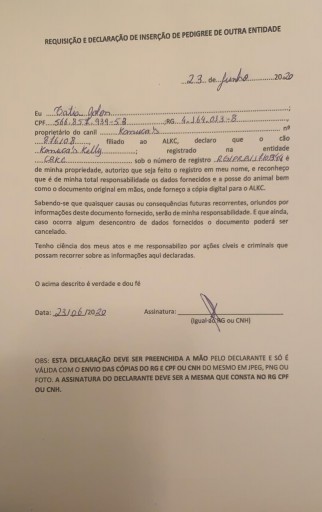 REQUISIÇÃO E DECLARAÇÃO DE INSERÇÃO DE PEDIGREE DE OUTRA ENTIDADE
23 de Junho 2020
Eu
CPF RG
proprietário do canil nº
filiado ao ALKC, declaro que o cão
Kelly registrado na entidade
sob o número de registro é
de minha propriedade, autorizo que seja feito o registro em meu nome, e reconheço
que é de minha total responsabilidade os dados fornecidos e a posse do animal bem
como o documental original em mãos, onde forneço a cópia digital para o ALKC.
Sabendo-se que qualquer causas ou consequências futuras recorrentes, oriundos por
informações deste documento fornecido, serão de minha responsabilidade. E que ainda,
caso ocorra algum desencontro de dados fornecidos o documento poderá ser
cancelado.
Tenho ciência dos meus atos e me responsabilizo por ações cíveis e criminais que
possam recorrer sobre as informações aqui declaradas.
O acima descrito é verdade e dou fé
Data: 23/06/2020 Assinatura:
(Igual ao RG ou CNH)
OBS: ESTA DECLARAÇÃO DEVE SER PREENCHIDA A MÃO PELO DECLARANTE E SÓ É
VÁLIDA COM O ENVIO DAS CÓPIAS DO RG E CPF OU CNH DO MESMO EM JPEG, PNG OU
FOTO. A ASSINATURA DO DECLARANTE DEVE SER A MESMA QUE CONSTA NO RG CPF
OU CNH.